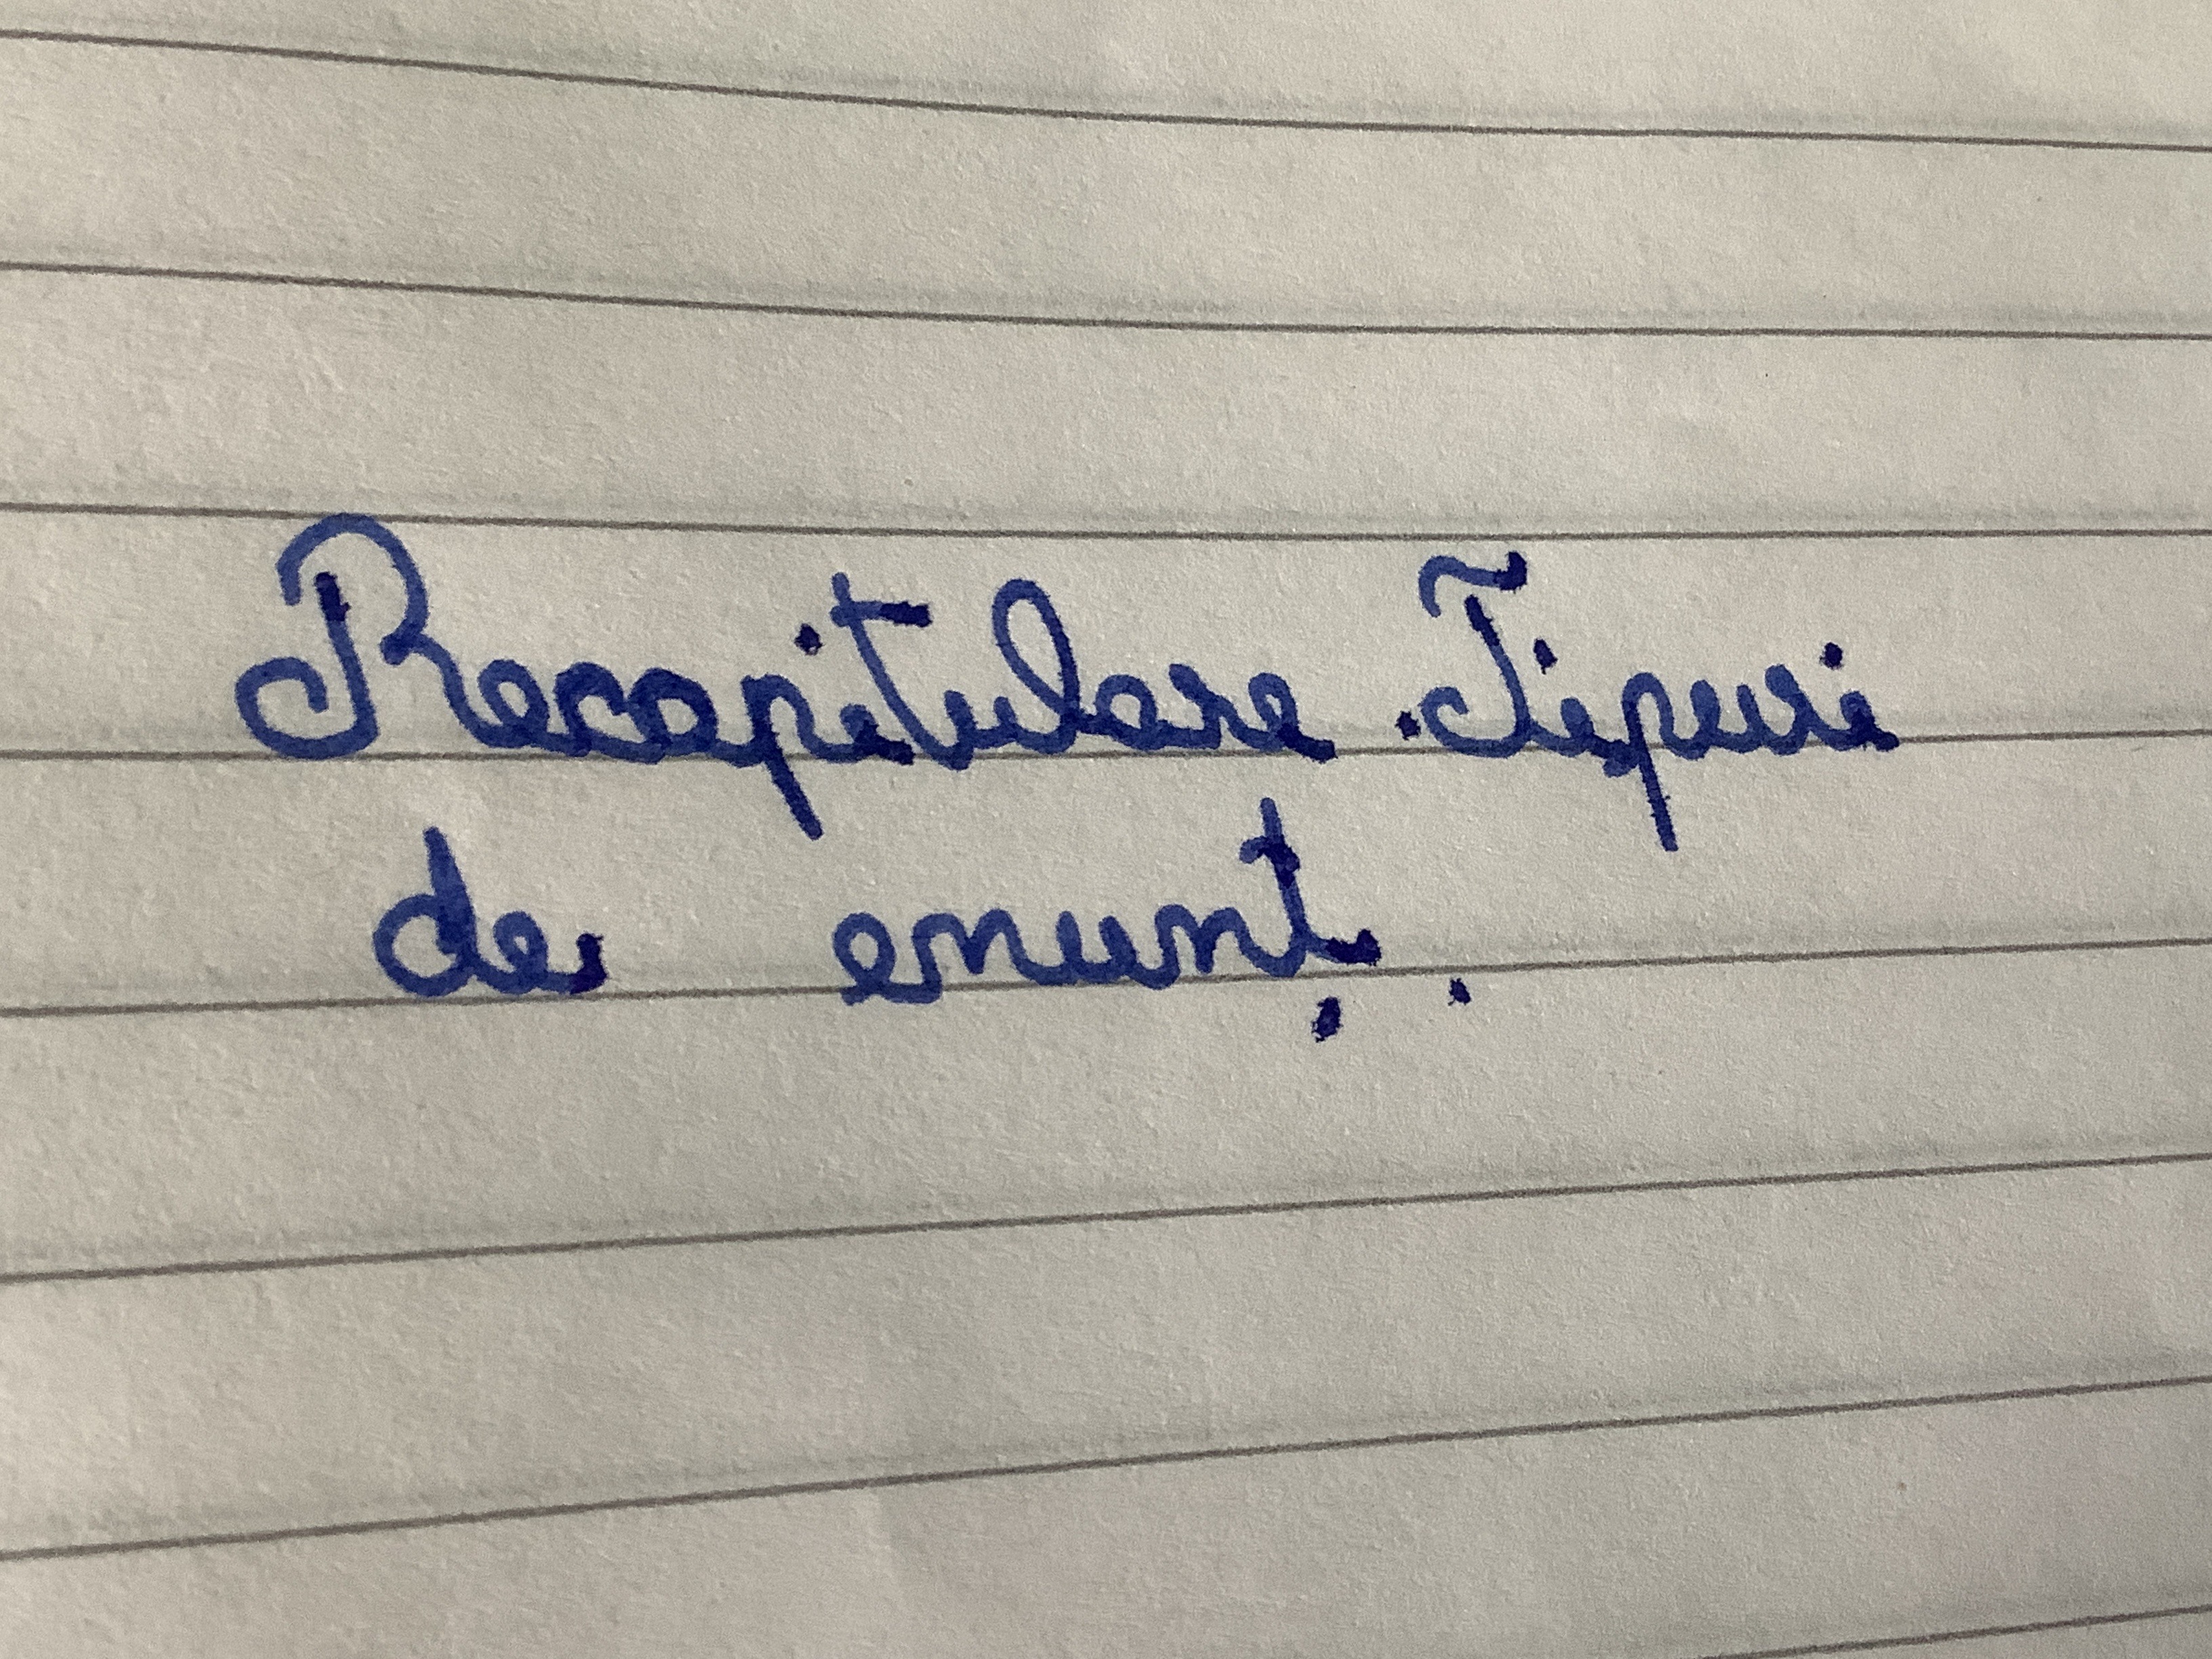 Recapitulare. Tipuri
de enunț.